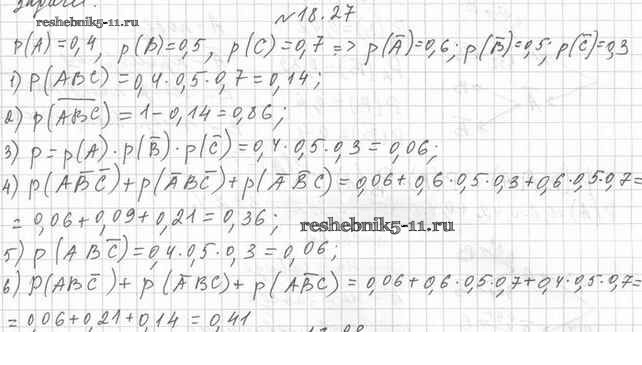 задачи.
reshebnik5-11.ru
№18.27
p(A)=0,4, p(B)=0,5, p(C)=0,7 => p(A̅)=0,6; p(B̅)=0,5; p(C̅)=0,3
1) p(ABC)=0,4·0,5·0,7=0,14;
2) p(A̅B̅C̅)=1-0,14=0,86;
3) p=p(A)·p(B̅)·p(C̅)=0,4·0,5·0,3=0,06;
4) p(AB̅C̅)+p(A̅BC̅)+p(A̅B̅C)=0,06+0,6·0,5·0,3+0,6·0,5·0,7=
=0,06+0,09+0,21=0,36;
reshebnik5-11.ru
5) p(ABC̅)=0,4·0,5·0,3=0,06;
6) p(ABC̅)+p(A̅BC)+p(AB̅C)=0,06+0,6·0,5·0,7+0,4·0,5·0,7=
=0,06+0,21+0,14=0,41